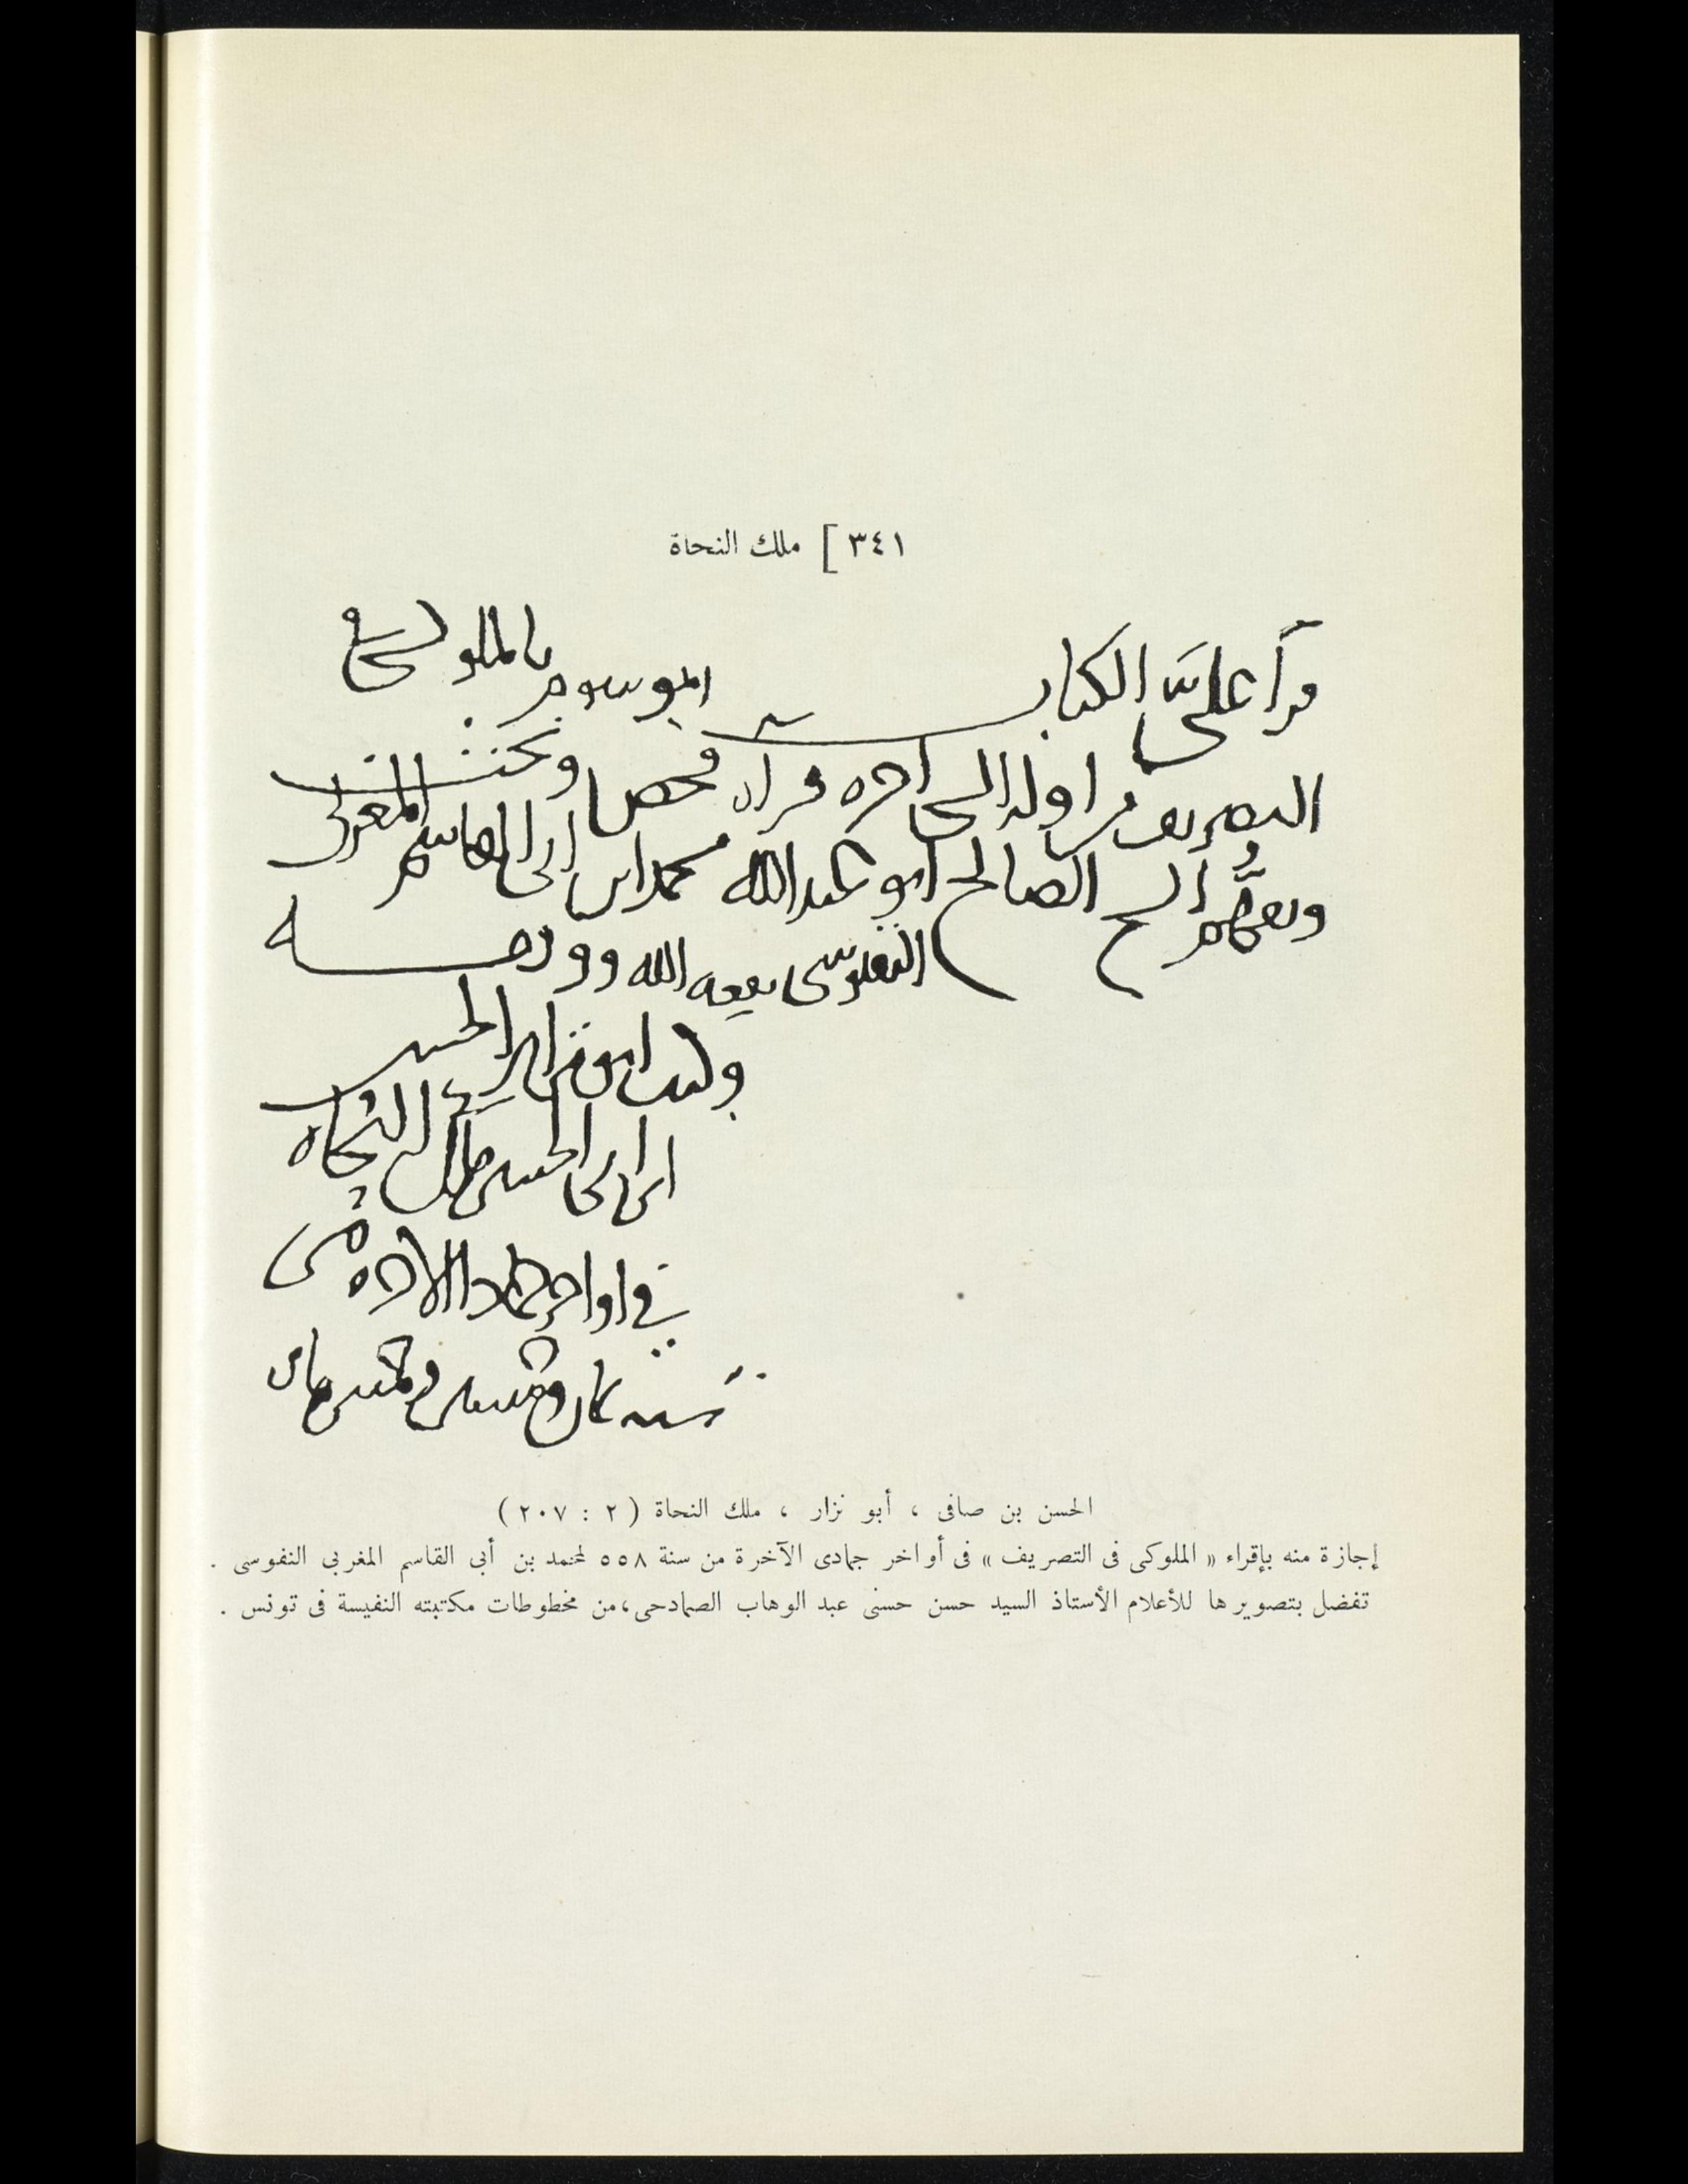 ٣٤١ [ ملك النحاة
قرأ علىّ الكتاب الموسوم بالملوكي في
التصريف من اوله الى اخره قراة فحص وبحث
وتفهم الشيخ الصالح ابو عبدالله محمد ابن ابى القاسم المغربى
النفوسى نفعه الله ووفقه
وكتب ابو نزار الحسن
ابن ابى الحسن ملك النحاه
في اواخر جمادا الاخره من
سنه ثمان وخمسين وخمس مايه
الحسن بن صافى ، أبو نزار ، ملك النحاة ( ٢ : ٢٠٧ )
إجازة منه بإقراء « الملوكى فى التصريف » فى أواخر جمادى الآخرة من سنة ٥٥٨ لمحمد بن أبى القاسم المغربى النفوسى .
تفضل بتصويرها للأعلام الأستاذ السيد حسن حسنى عبد الوهاب الصمادحى، من مخطوطات مكتبته النفيسة فى تونس .